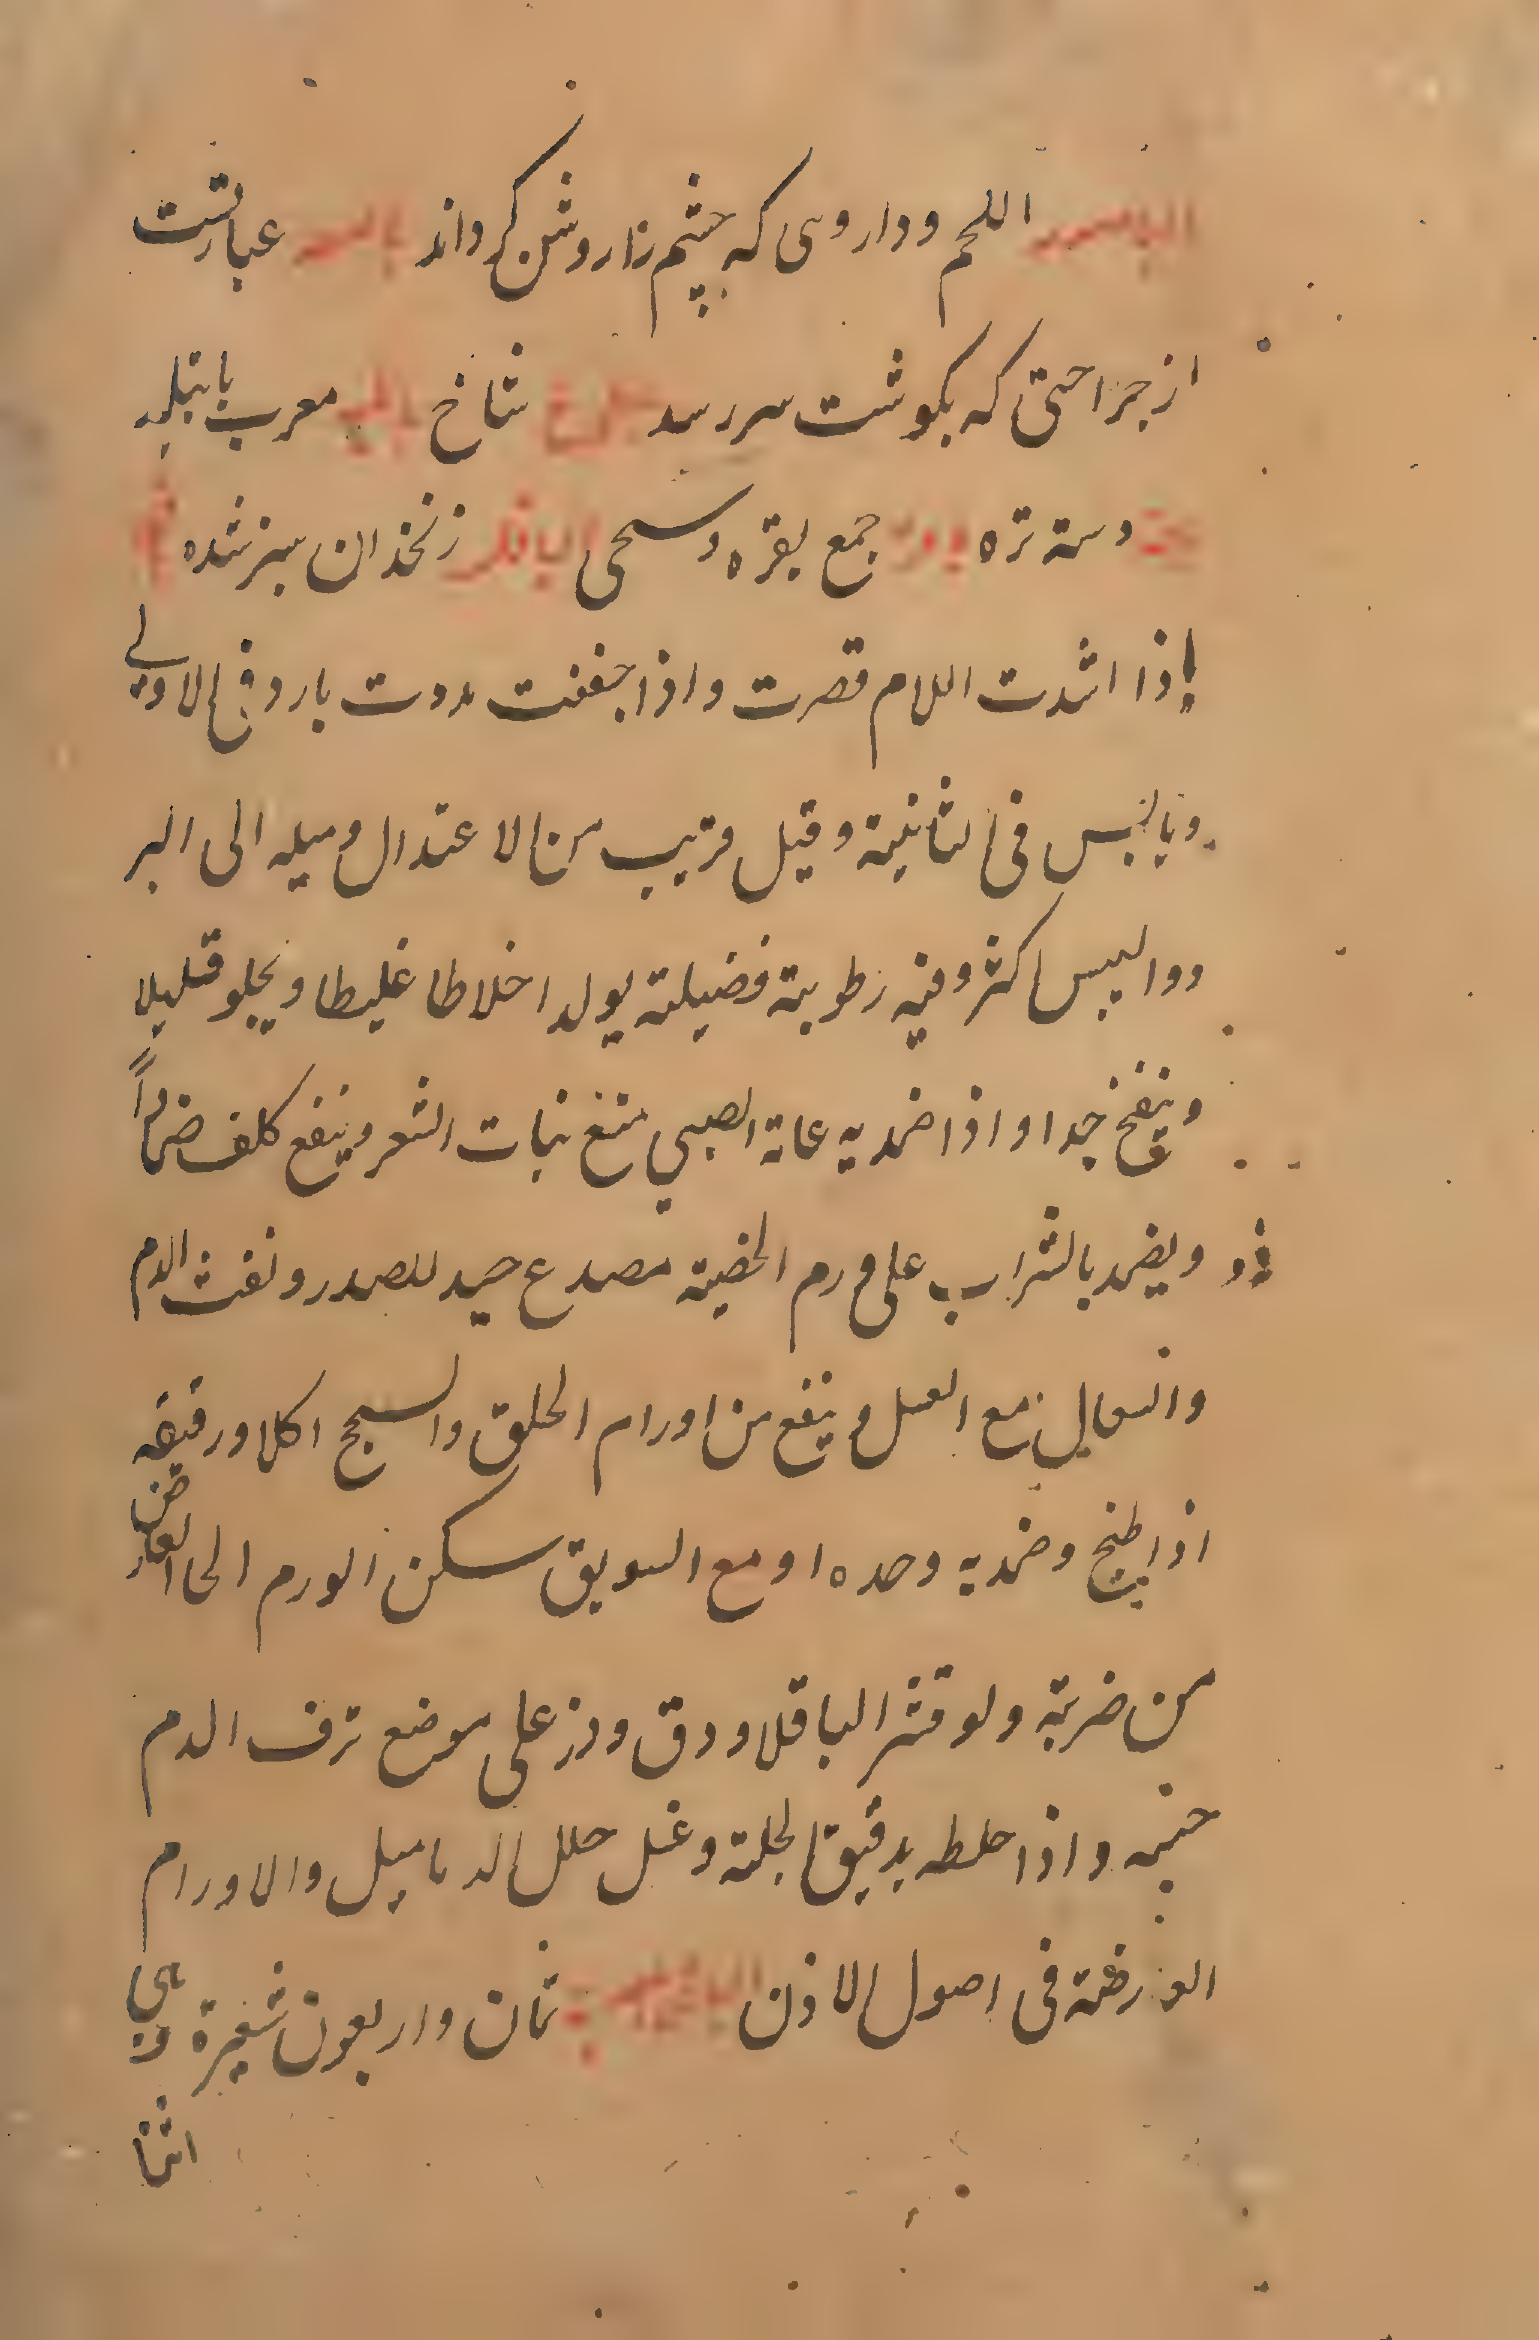 اللحم وداروی که چشم را روشن کرداند عبارتست
از جراحتی که بکوشت سر رسد شاخ معرب باتیله
دسته تره جمع بقره وسحی الباقلی زنخدان سبز شده
إذا اشدت اللام قصرت واذا خففت مدت بارد فی الاولی
ویابس فی الثانیة وقیل قریب من الاعتدال ومیله الی البر
دوالیبس اکثر وفیه رطوبة فضیلة یولد اخلاطا غلیطا ویجلو قلیلا
وینفخ جدا واذا ضمد به عانة الصبی منع نبات الشعر وینفع کلف ضمادًا
ویضمد بالشراب علی ورم الخصیة مصدع جید للصدر ونفث الدم
والسعال مع العسل وینفع من اورام الحلق والسحج اکلا ودقیقه
اذا طبخ وضمد به وحده او مع السویق سکن الورم الحی العارض
من ضربة ولو قشر الباقلا ودق وذر علی موضع نزف الدم
حبسه واذا خلطه بدقیق الحلبة وعسل حلل الدمامیل والاورام
العارضة فی اصول الاذن ثمان واربعون شعیرة وهی
اثنا